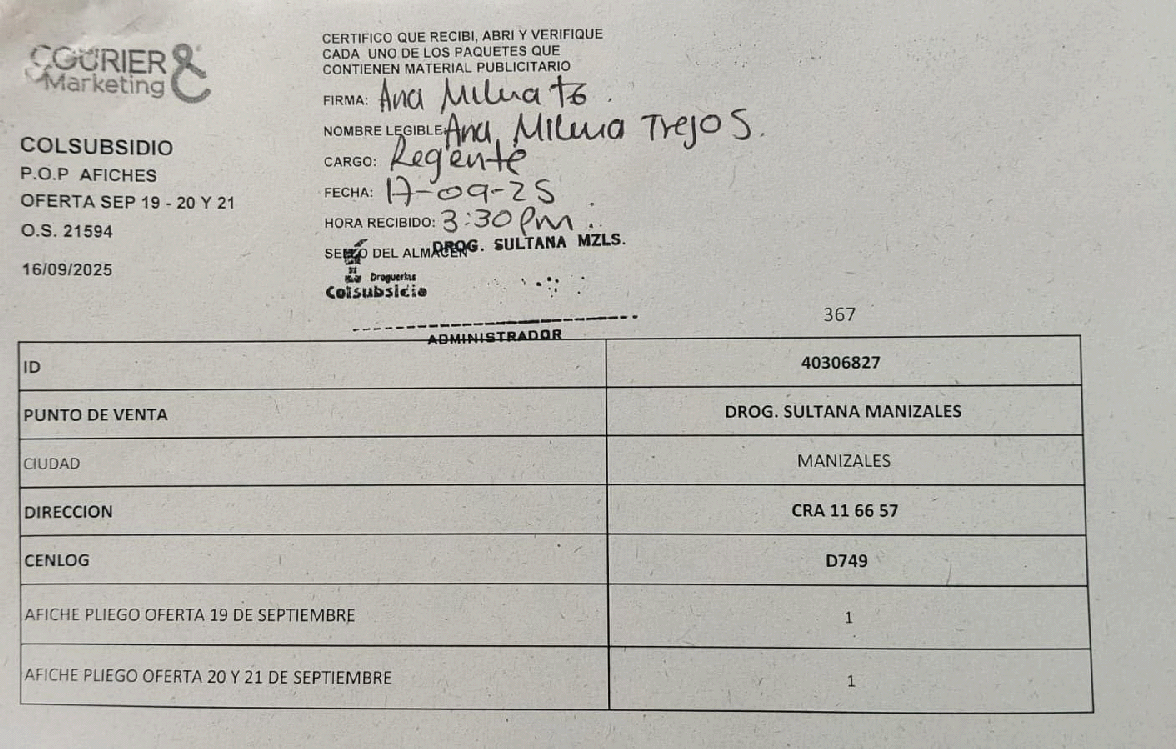 COURIER &
Marketing
COLSUBSIDIO
P.O.P AFICHES
OFERTA SEP 19 - 20 Y 21
O.S. 21594
16/09/2025
CERTIFICO QUE RECIBI, ABRI Y VERIFIQUE
CADA UNO DE LOS PAQUETES QUE
CONTIENEN MATERIAL PUBLICITARIO
FIRMA: Ana Milena
NOMBRE LEGIBLE: Ana Milena Trejo S.
CARGO: Regente
FECHA: 17-09-25
HORA RECIBIDO: 3:30 Pm
SELLO DEL ALMACEN DROG. SULTANA MZLS.
Droguerías
Colsubsidio
ADMINISTRADOR
367
ID 40306827
PUNTO DE VENTA DROG. SULTANA MANIZALES
CIUDAD MANIZALES
DIRECCION CRA 11 66 57
CENLOG D749
AFICHE PLIEGO OFERTA 19 DE SEPTIEMBRE 1
AFICHE PLIEGO OFERTA 20 Y 21 DE SEPTIEMBRE 1